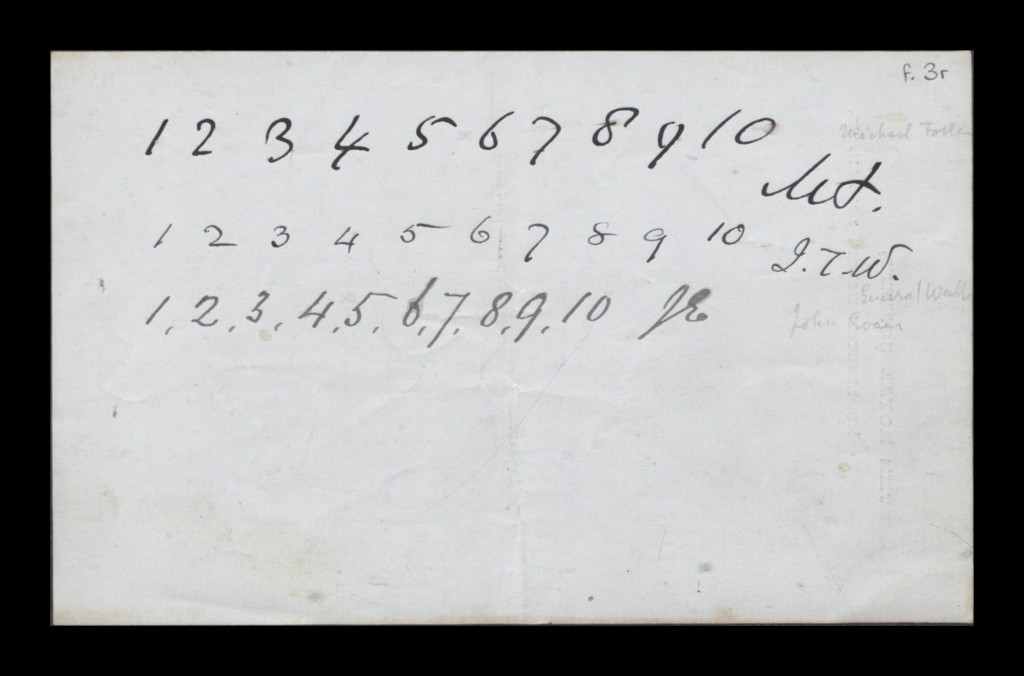 f. 3r
1 2 3 4 5 6 7 8 9 10
Michael Foster
M.F.
1 2 3 4 5 6 7 8 9 10
J.T.W.
General Walker
1, 2, 3, 4, 5, 6, 7, 8, 9, 10 JE
John Evans